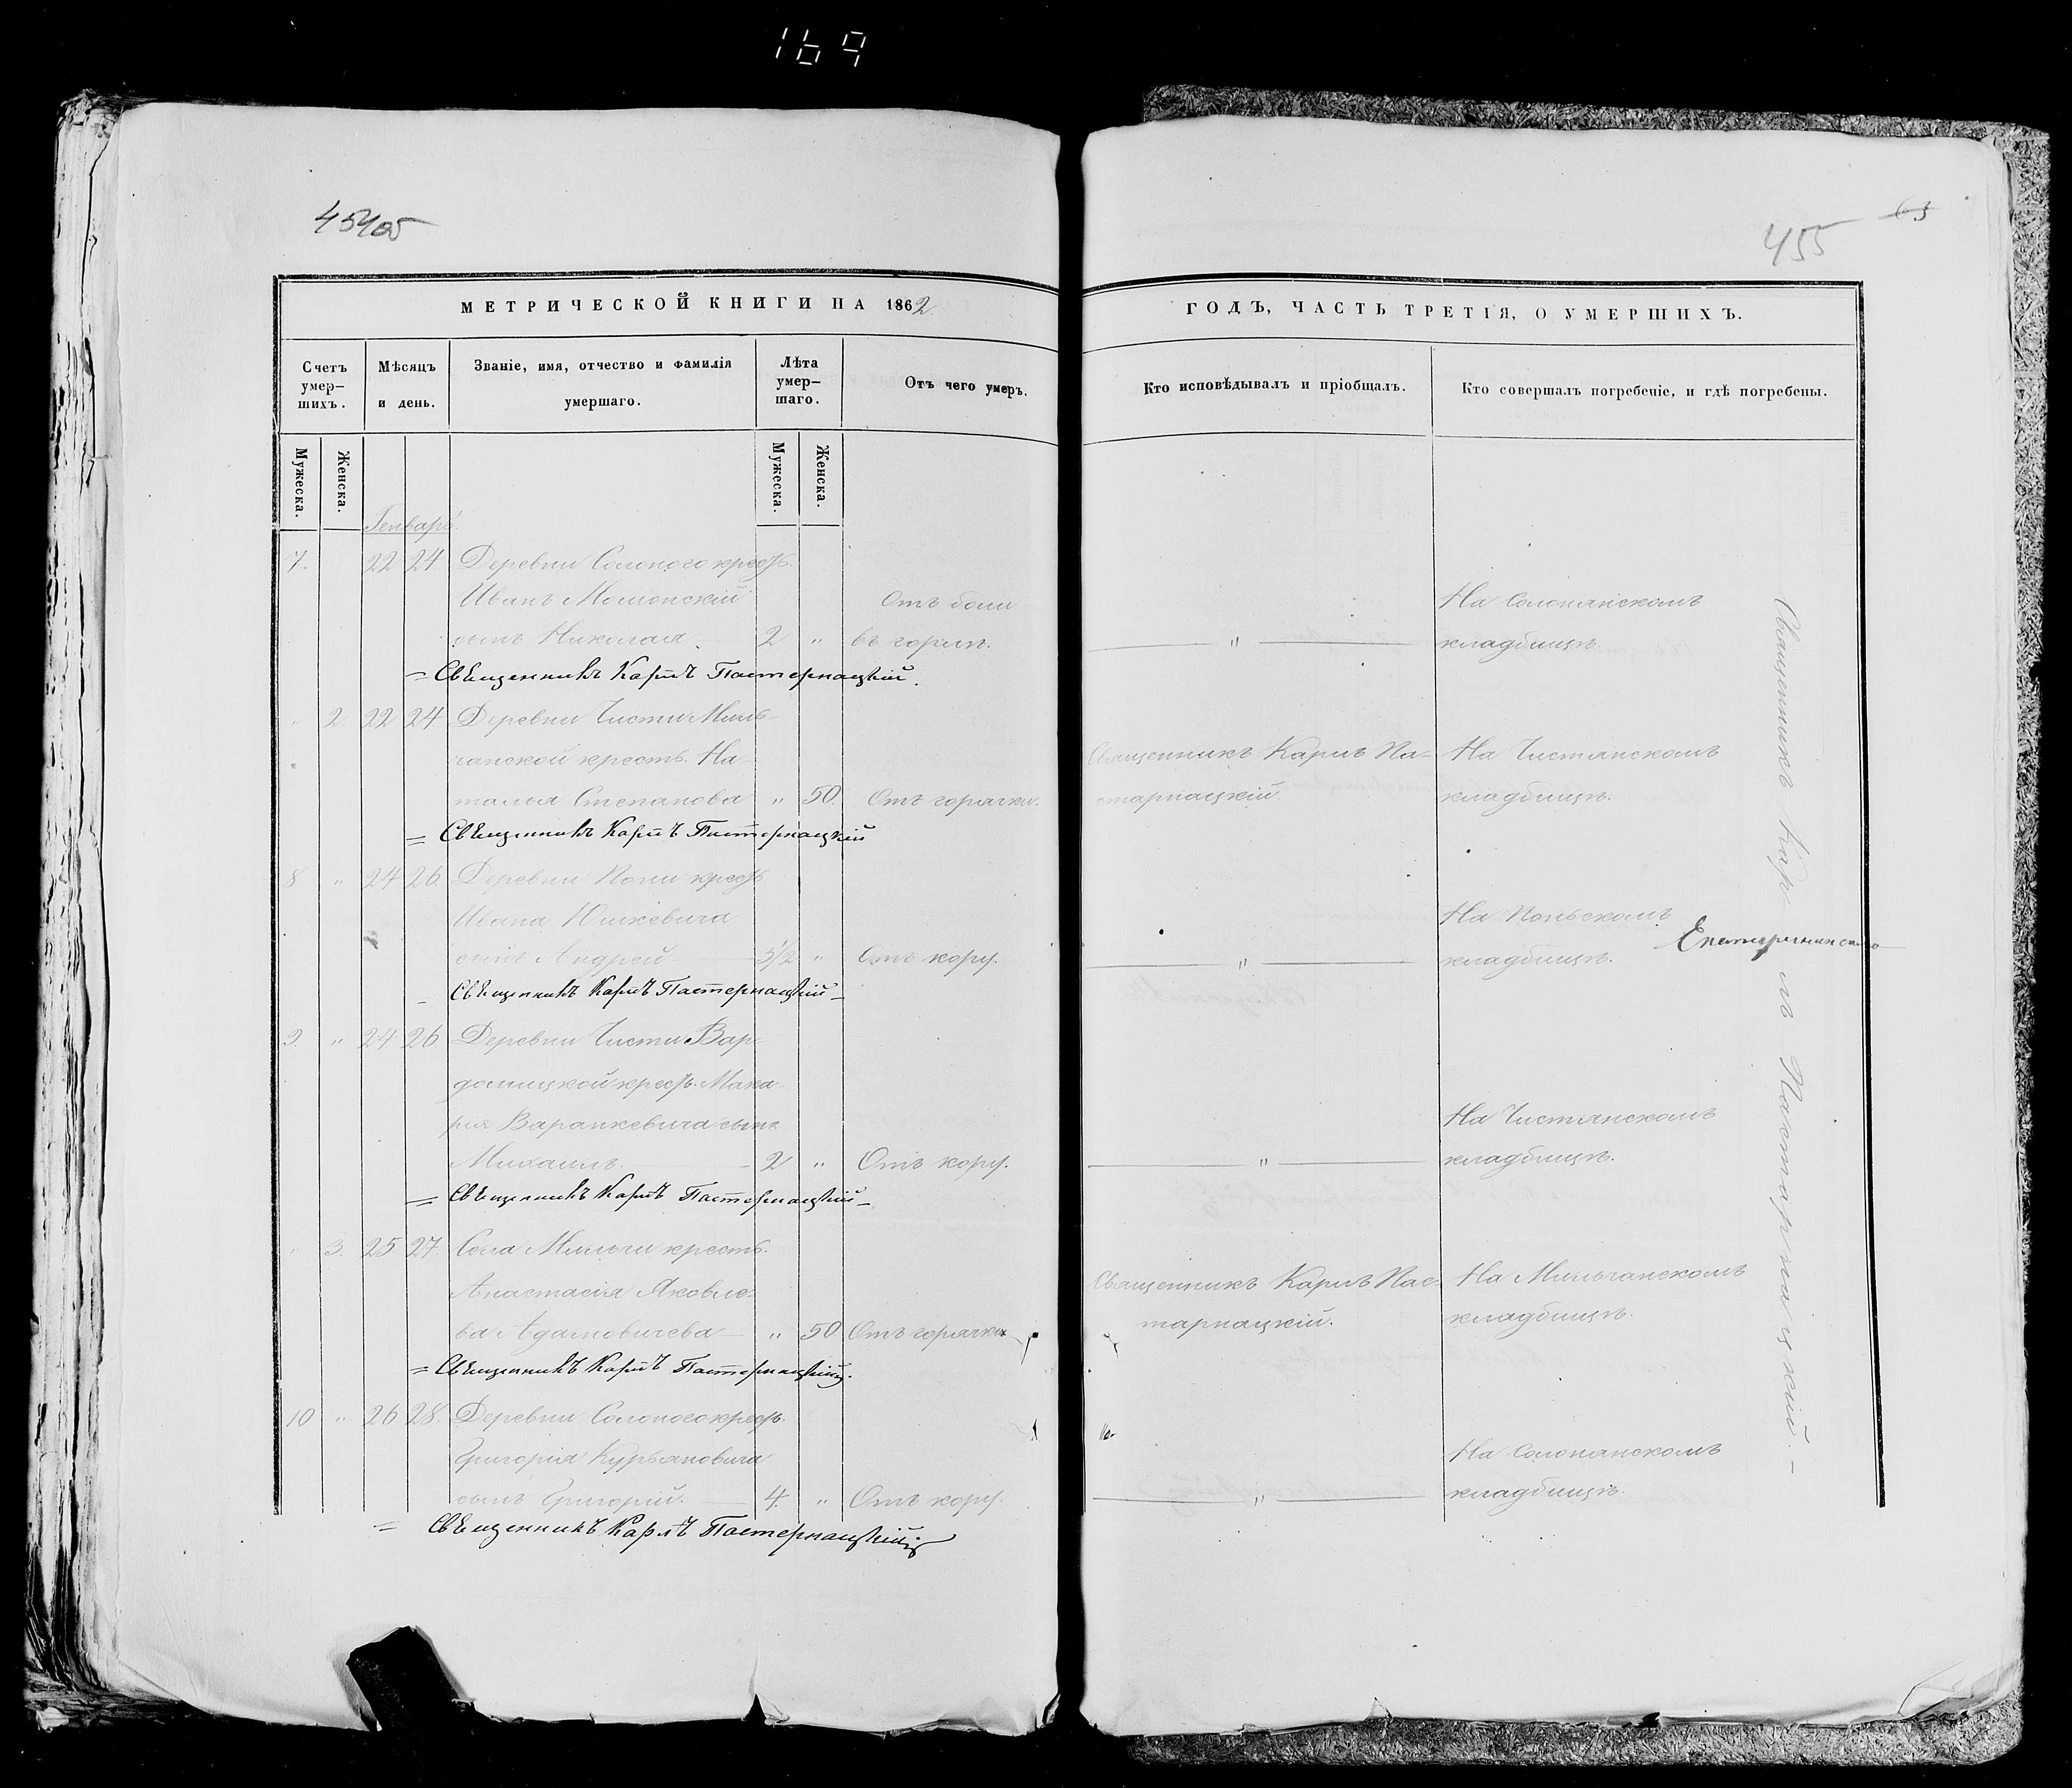 169
455
63
МЕТРИЧЕСКОЙ КНИГИ НА 1862
ГОДЪ, ЧАСТЬ ТРЕТІЯ, О УМЕРШИХЪ.
Счетъ умер-шихъ.
Мѣсяцъ и день.
Званіе, имя, отчество и фамилія умершаго.
Лѣта умер-шаго.
Отъ чего умеръ.
Кто исповѣдывалъ и пріобщалъ.
Кто совершалъ погребеніе, и гдѣ погребены.
Мужеска.
Женска.
Мужеска.
Женска.
Генварь.
7. 22 24 Деревни Солоного крест.
Иванъ
Отъ боли
На Солонянскомъ
сынъ Николая 2 " въ горлѣ. " кладбищѣ.
= Священникъ Карлъ Пастернацкій.
" 2. 22 24 Деревни Чисти Миль-
чанской крестъ. На-
Священникъ Карлъ Па-
На Чистянскомъ
талья Степанова " 50. Отъ горячки. старнацкій кладбищѣ.
= Священникъ Карлъ Пастернацкій
8 " 24 26 Деревни Пони крест.
Ивана Юшкевича
На Поньскомъ
Екатерининск
сынъ Андрей 5 1/2 " Отъ кору. " кладбищѣ.
Священникъ Карлъ Пастернацкій
9. " 24 26 Деревни Чисти Вар-
домицкой крест. Мака-
рія Варанкевича сынъ
На Чистянскомъ
Михаилъ 2 " Отъ кору. " кладбищѣ.
= Священникъ Карлъ Пастернацкій
" 3. 25 27. Села Мильчи крестъ.
Анастасія Яковле-
Священникъ Карлъ Пас-
На Мильчанскомъ
ва Адамовичева " 50 Отъ горячки тарнацкій. кладбищѣ.
= Священникъ Карлъ Пастернацкій.
10 " 26 28. Деревни Солоного крест.
Григорія Курьяновича
На Солонянскомъ
сынъ Григорій. 4. " Отъ кору. " кладбищѣ.
= Священникъ Карлъ Пастернацкій
Священникъ Карлъ Пастарнацкій.